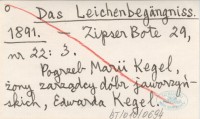 Das Leichenbegängniss.
1891. — Zipser Bote 29,
nr 22: 3.
Pogrzeb Marii Kegel,
żony zarządcy dóbr jaworzyń-
skich, Edwarda Kegel.